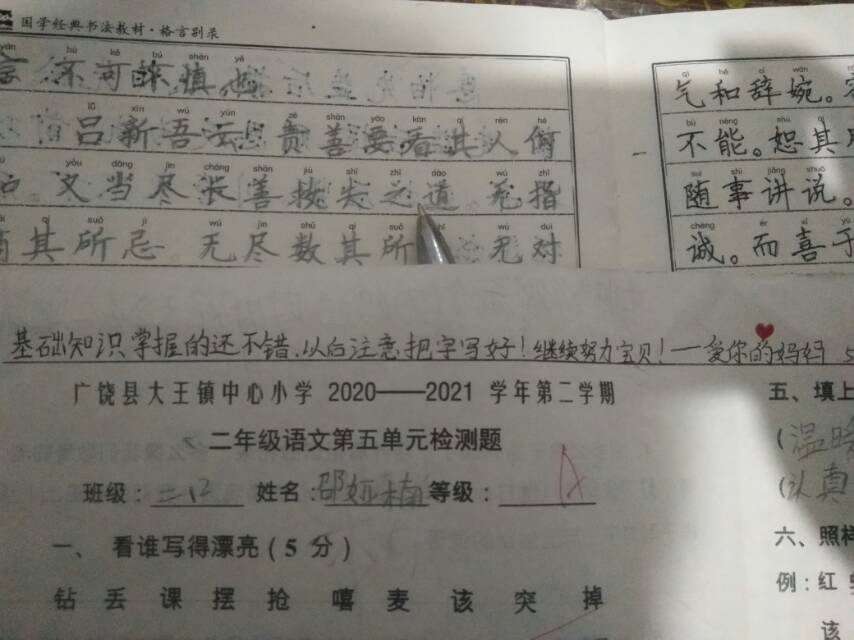 国学经典书法教材·格言别录
言 不可辞慎也
吕新吾云 责善要看其人何
又当尽长善救失之道 无指
其所忌 无尽数其所 无对
气和辞婉。
不能。恕其
随事讲说。
诚。而喜于
基础知识掌握的还不错,以后注意把字写好!继续努力宝贝!一爱你的妈妈
广饶县大王镇中心小学 2020——2021 学年第二学期
二年级语文第五单元检测题
班级: 二12 姓名: 邵娅楠 等级: A
一、 看谁写得漂亮(5 分)
钻 丢 课 摆 抢 嘻 麦 该 突 掉
五、填上
(温暖
(认真
六、照样
例:红
该